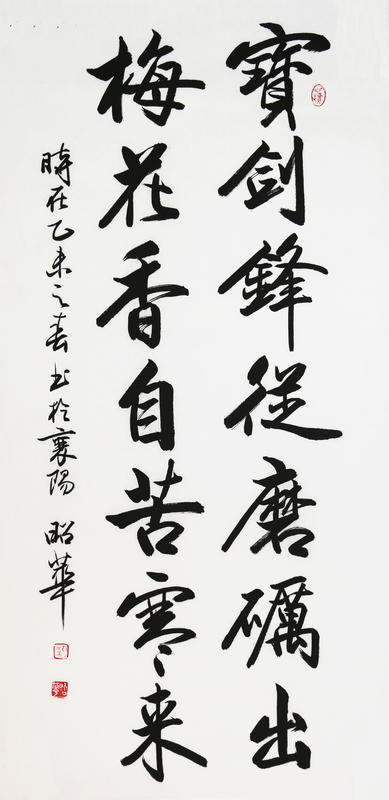 寶劍鋒從磨礪出
梅花香自苦寒来
時在乙未之春书於襄陽 昭華